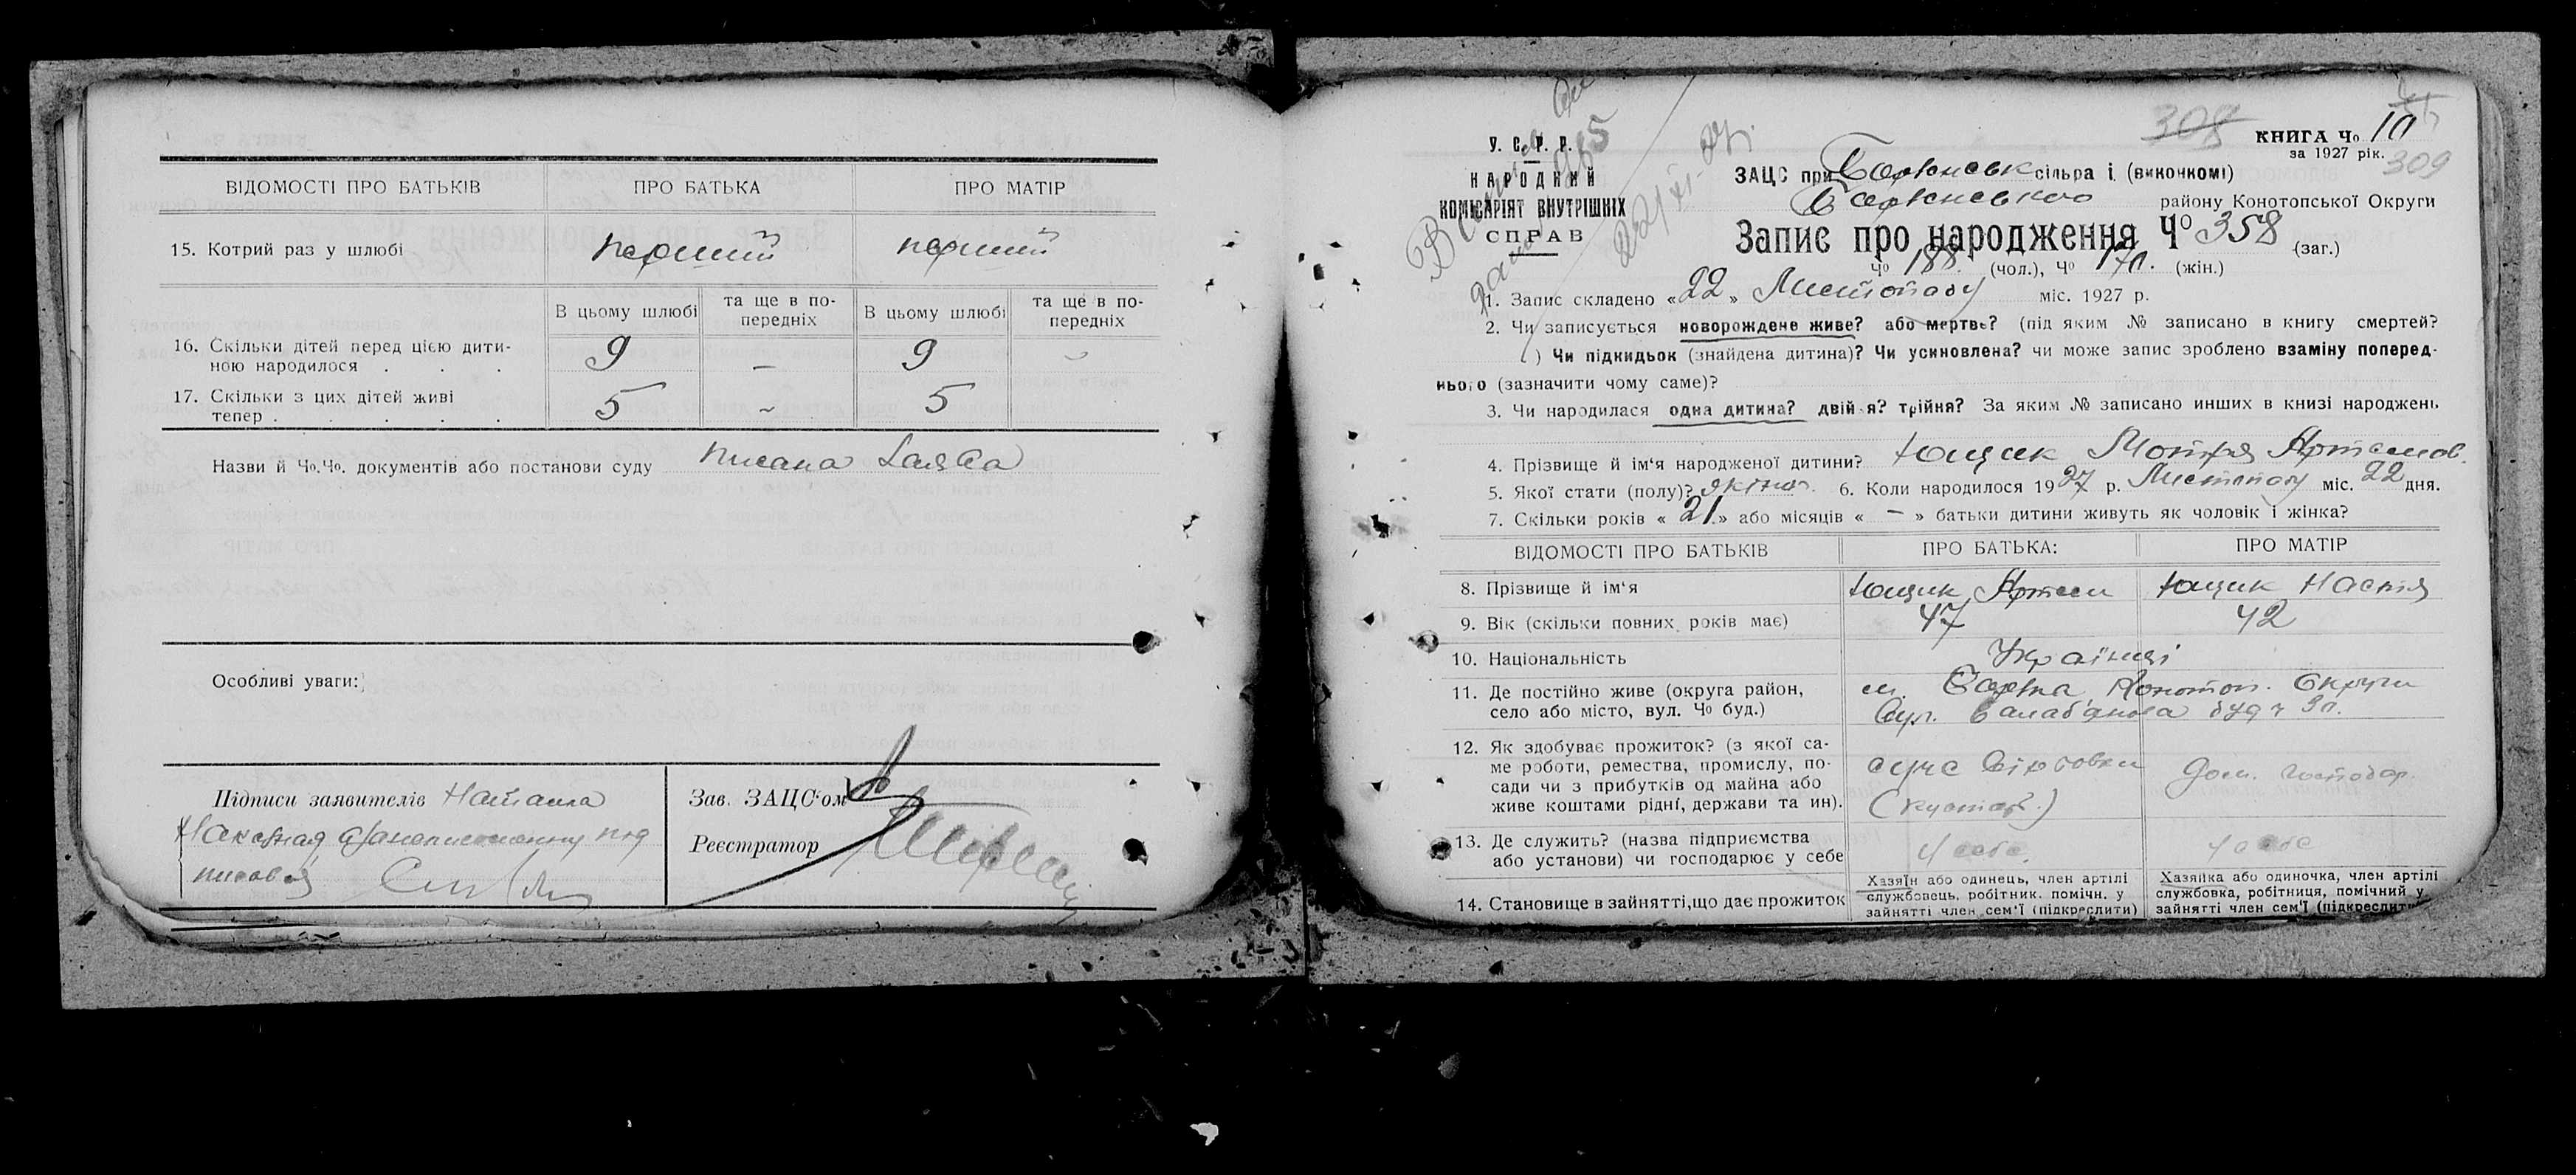 ВІДОМОСТІ ПРО БАТЬКІВ ПРО БАТЬКА ПРО МАТІР
15. Котрий раз у шлюбі перший перший
В цьому шлюбі та ще в по-передніх В цьому шлюбі та ще в по-передніх
16. Скільки дітей перед цією дити-
ною народилося . . . 9 — 9 -
17. Скільки з цих дітей живі
тепер . . . . . 5 - 5
Назви й Чо.Чо. документів або постанови суду писана заява
Особливі уваги:
Підписи заявителів Наталка
Зав. ЗАЦС'ом
Реєстратор
308
КНИГА Чо 10
за 1927 рік.
309
У. С. Р. Р.
НАРОДНИЙ
КОМІСАРІЯТ ВНУТРІШНІХ
СПРАВ
ЗАЦС при сільра і (виконкомі)
району Конотопської Округи
Запис про народження Чо 358 (заг.)
Чо 188 (чол.), Чо 170. (жін.)
1. Запис складено «22» Листопаду міс. 1927 р.
2. Чи записується новорождене живе? або мертве? (під яким № записано в книгу смертей?
) Чи підкидьок (знайдена дитина)? Чи усиновлена? чи може запис зроблено взаміну поперед-
нього (зазначити чому саме)?
3. Чи народилася одна дитина? двійня? трійня? За яким № записано инших в книзі народжень
4. Прізвище й ім'я народженої дитини? Ющик Мотря Артемов.
5. Якої стати (полу)? жіноч. 6. Коли народилося 1927 р. Листопаду міс. 22 дня.
7. Скільки років «21» або місяців « — » батьки дитини живуть як чоловік і жінка?
ВІДОМОСТІ ПРО БАТЬКІВ ПРО БАТЬКА: ПРО МАТІР
8. Прізвище й ім'я Ющик Артем Ющик Настя
9. Вік (скільки повних років має) 47 42
10. Національність Українці
11. Де постійно живе (округа район, м. Конотоп. Округи
село або місто, вул. Чо буд.) Вул.
12. Як здобуває прожиток? (з якої са-
ме роботи, ремества, промислу, по-
сади чи з прибутків од майна або
живе коштами рідні, держави та ин). Дом. господар.
13. Де служить? (назва підприємства
або установи) чи господарює у себе У себе. У себе
14. Становище в зайнятті, що дає прожиток
Хазяїн або одинець, член артілі
службовець, робітник, помічн. у
зайнятті член сем'ї (підкреслити)
Хазяйка або одиночка, член артілі
службовка, робітниця, помічний у
зайнятті член сем'ї (підкреслити)